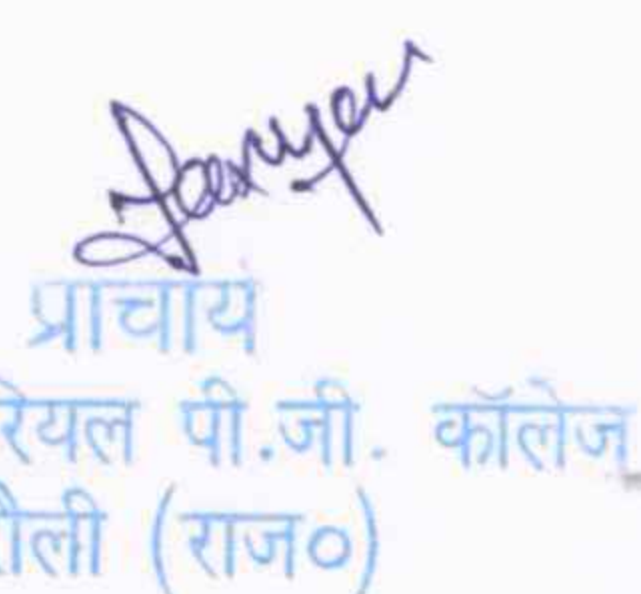 प्राचार्य
रियल पी.जी. कॉलेज
ौली (राज०)